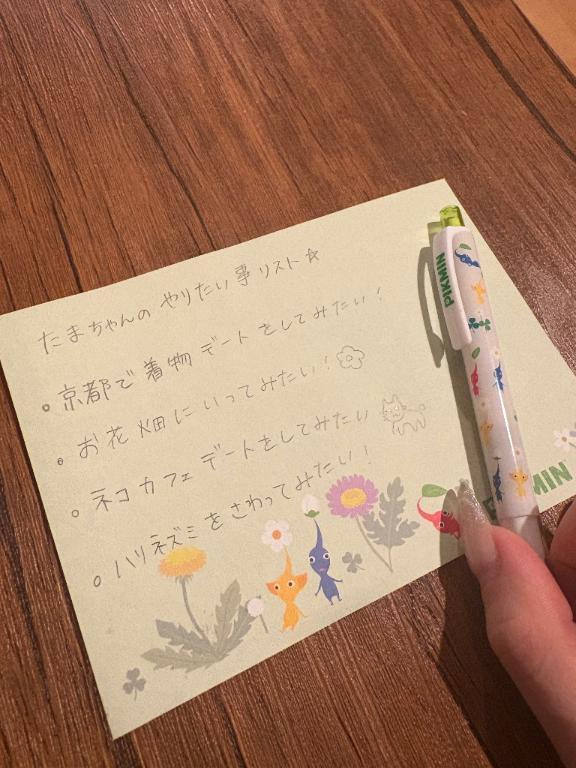 たまちゃんの やりたい事リスト☆
。京都で着物デートをしてみたい！
。お花畑にいってみたい！
。ネコカフェデートをしてみたい
。ハリネズミをさわってみたい！
PIKMIN